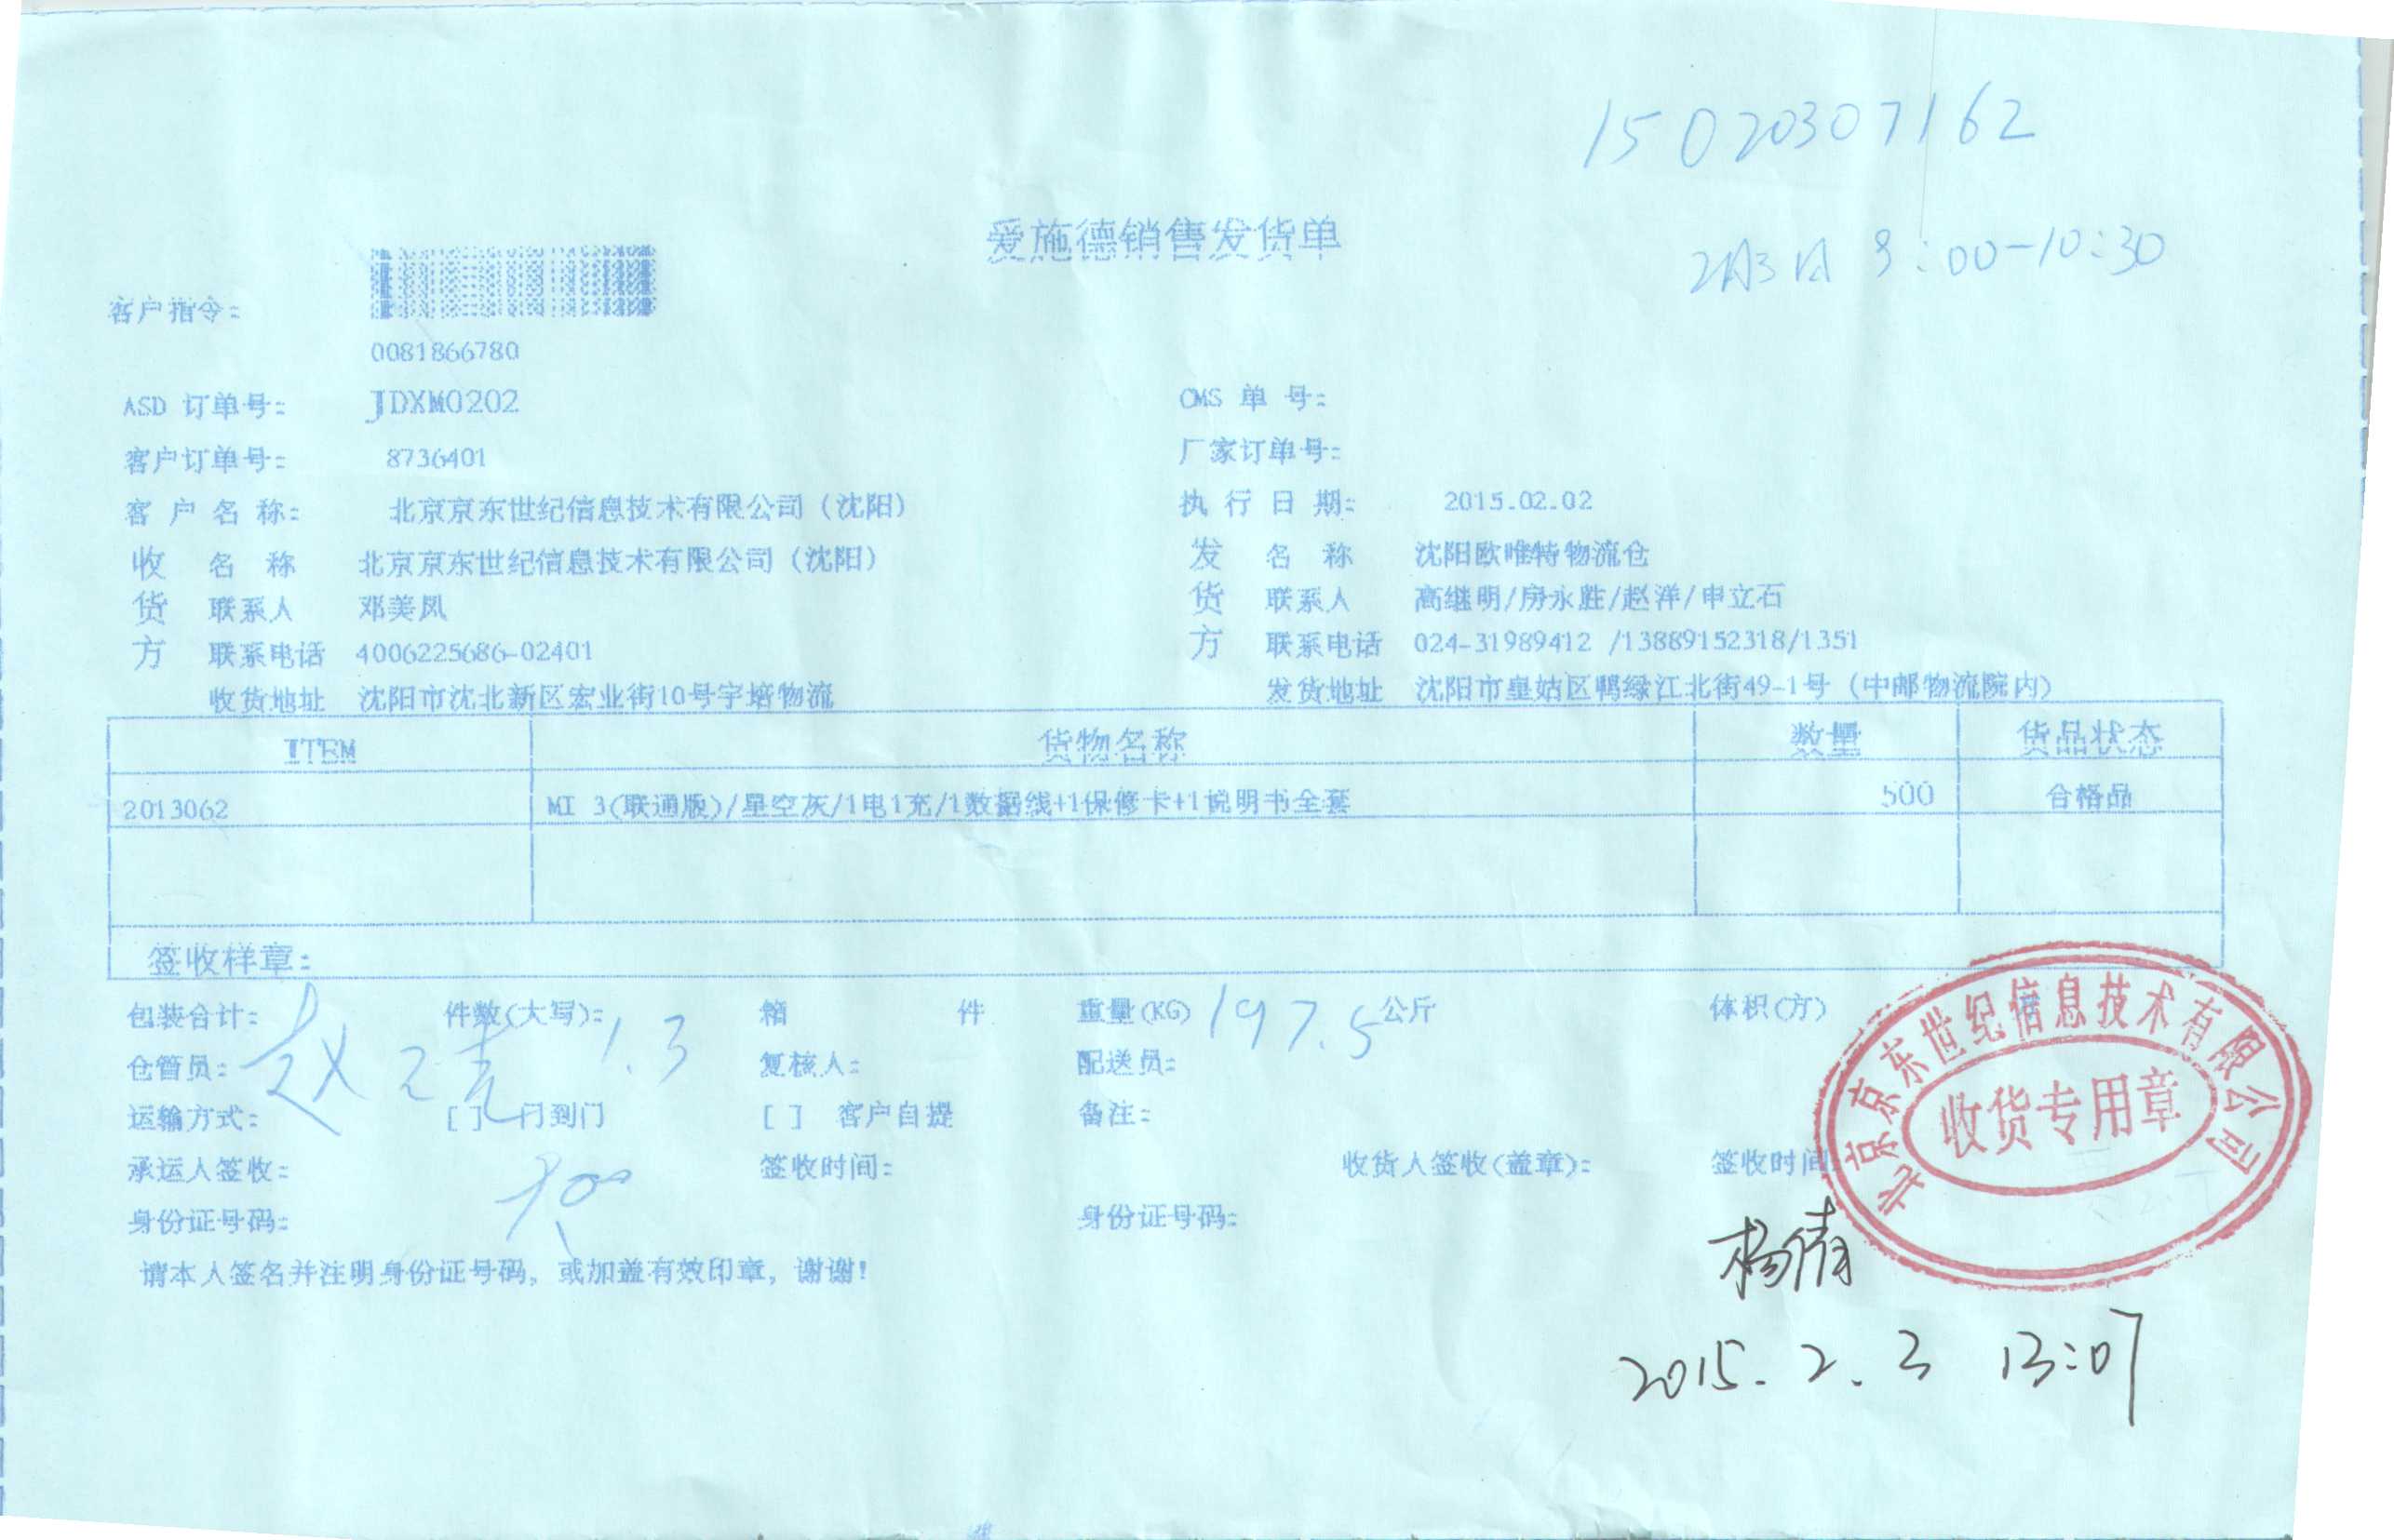 15020307162
爱施德销售发货单
2月3日 8:00-10:30
客户指令:
0081866780
ASD 订单号: JDXM0202 CMS 单 号:
客户订单号: 8736401 厂家订单号:
客 户 名 称: 北京京东世纪信息技术有限公司（沈阳） 执 行 日 期: 2015.02.02
收 名 称 北京京东世纪信息技术有限公司（沈阳） 发 名 称 沈阳欧唯特物流仓
货 联系人 邓美凤 货 联系人 高继明/房永胜/赵洋/申立石
方 联系电话 4006225686-02401 方 联系电话 024-31989412 /13889152318/1351
收货地址 沈阳市沈北新区宏业街10号宇培物流 发货地址 沈阳市皇姑区鸭绿江北街49-1号（中邮物流院内）
ITEM 货物名称 数量 货品状态
2013062 MI 3(联通版)/星空灰/1电1充/1数据线+1保修卡+1说明书全套 500 合格品
签收样章:
包装合计: 件数(大写): 箱 件 重量(KG) 197.5 公斤 体积(方)
仓管员: 赵 1.3 复核人: 配送员:
运输方式: [ ] 门到门 [ ] 客户自提 备注:
承运人签收: 签收时间: 收货人签收(盖章): 签收时间:
身份证号码: 身份证号码:
请本人签名并注明身份证号码，或加盖有效印章，谢谢!
北京京东世纪信息技术有限公司
收货专用章
杨倩
2015.2.3 13:07